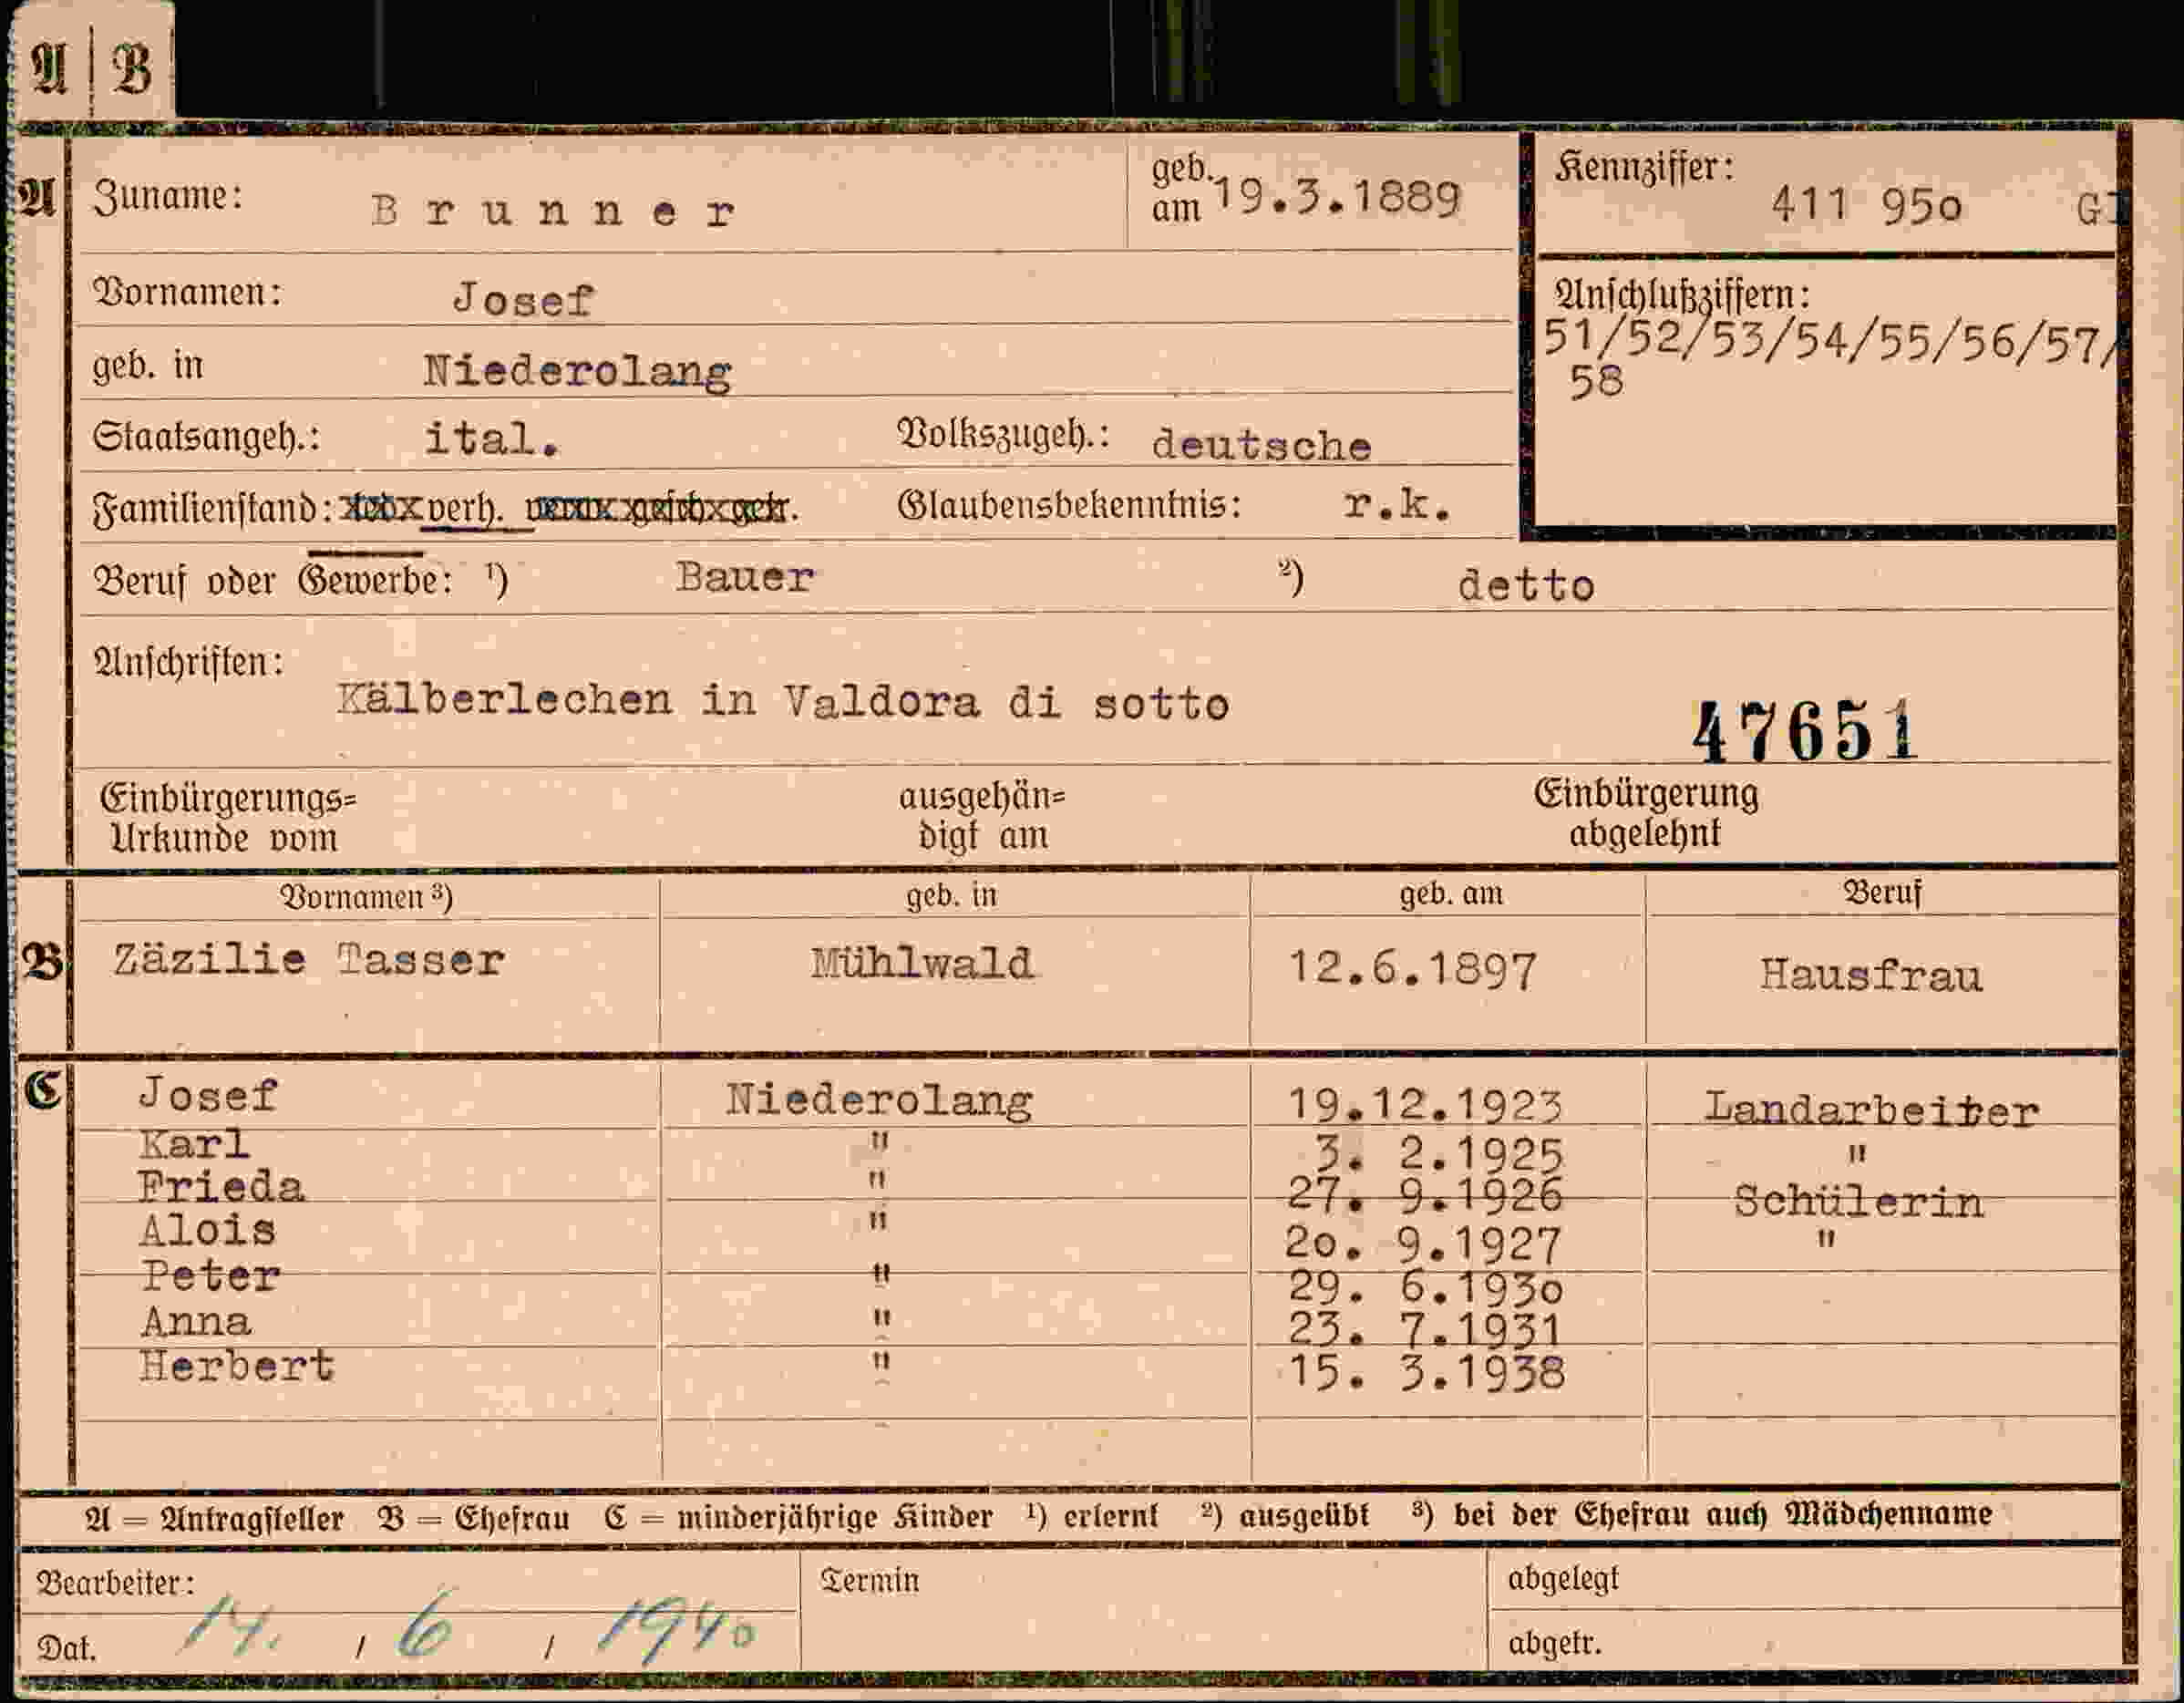 A | B
A Zuname: Brunner geb. am 19.3.1889 Kennziffer: 411 95o
Vornamen: Josef Anschlußziffern:
51/52/53/54/55/56/57/
58
geb. in Niederolang
Staatsangeh.: ital. Volkszugeh.: deutsche
Familienstand: verh. Glaubensbekenntnis: r.k.
Beruf oder Gewerbe: ¹) Bauer ²) detto
Anschriften:
Kälberlechen in Valdora di sotto 47651
Einbürgerungs= ausgehän= Einbürgerung
Urkunde vom digt am abgelehnt
Vornamen ³) geb. in geb. am Beruf
B Zäzilie Tasser Mühlwald 12.6.1897 Hausfrau
C Josef Niederolang 19.12.1923 Landarbeiter
Karl " 3. 2.1925 "
Frieda " 27. 9.1926 Schülerin
Alois " 2o. 9.1927 "
Peter " 29. 6.193o
Anna " 23. 7.1931
Herbert " 15. 3.1938
A = Antragsteller B = Ehefrau C = minderjährige Kinder ¹) erlernt ²) ausgeübt ³) bei der Ehefrau auch Mädchenname
Bearbeiter: Termin abgelegt
Dat. 14. / 6 / 1940 abgetr.